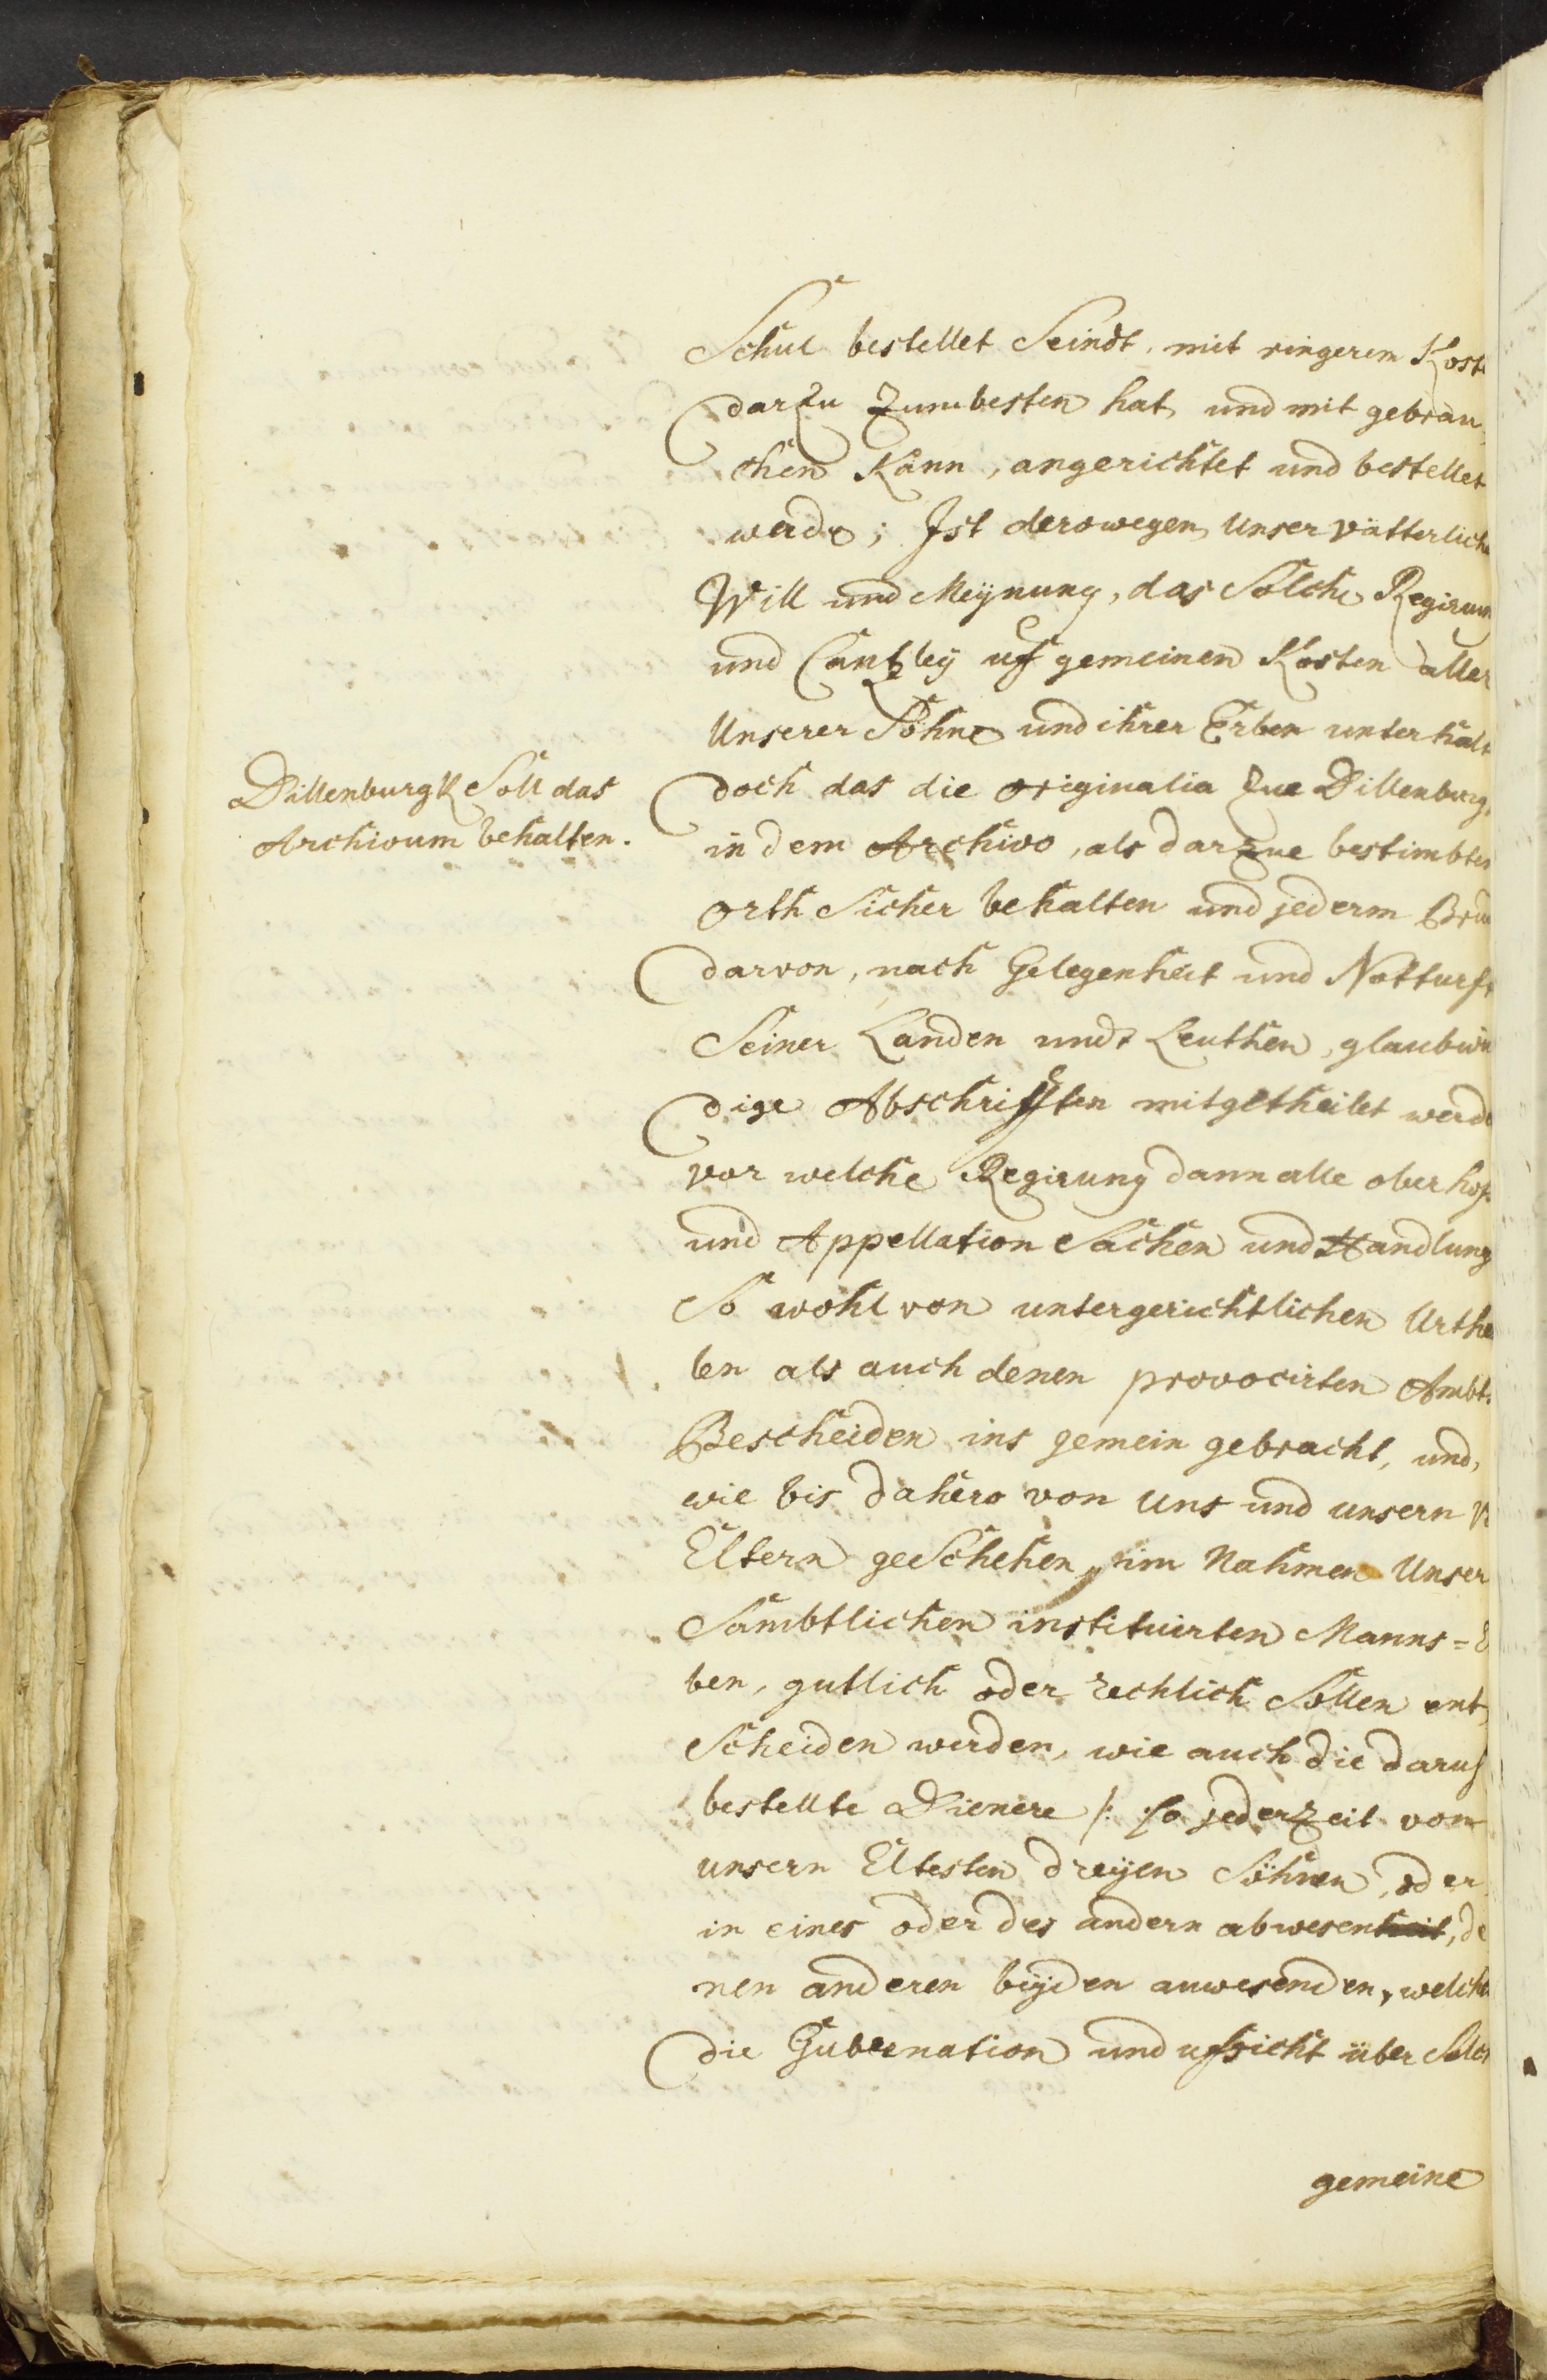 Schul bestellet Seindt, mit ringerem Kost
darzu zum besten hat, und mit gebrau,
chen Kann, angerichtet und bestellet
werde; Ist derowegen Unser vätterliche
Will und Meÿnung, das Solche Regirun
und Cantzleÿ uf gemeinen Kosten aller
Unserer Söhne und ihrer Erben unterhalt
Dillenburgk Soll das
Archivum behalten.
doch das die originalia zue Dillenburg,
in dem Archivo, als darzue bestimbten
orth Sicher behalten und jederm Bru
darvon, nach Gelegenheit und Notturft
Seiner Landen undt Leuthen, glaubwü
dige Abschrifften mitgetheilet werde
vor welche Regirung dann alle ober hof
und Appellation Sachen und Handlung
So wohl von untergerichtlichen Urthe
len als auch denen provocirten Ambt.
Bescheiden ins gemein gebracht, und,
wie bis dahero von Uns und unsern V
Eltern geSchehen, im Nahmen Unser
Sämbtlichen instituirten Manns=E
ben, gutlich oder rechlich Sollen ent,
Scheiden werden, wie auch die daruf
bestellte Dienere /: so jederzeit von
unsern Eltesten dreÿen Söhnen, oder
in eines oder des andern abwesenheit, de
nen anderen beÿden anwesenden, welche
die Gubernation und ufsicht über Solch
gemeine